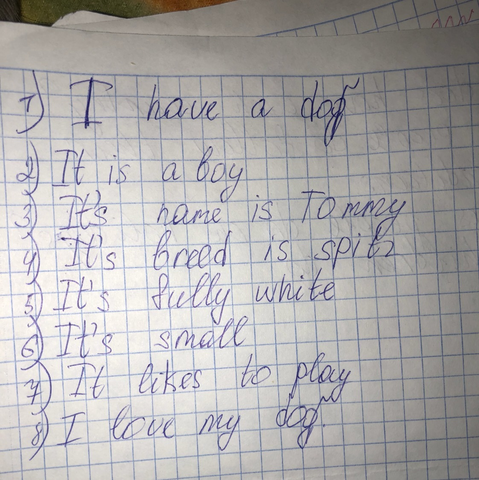 1) I have a dog
2) It is a boy
3) It's name is Tommy
4) It's breed is spitz
5) It's fully white
6) It's small
7) It likes to play
8) I love my dog.